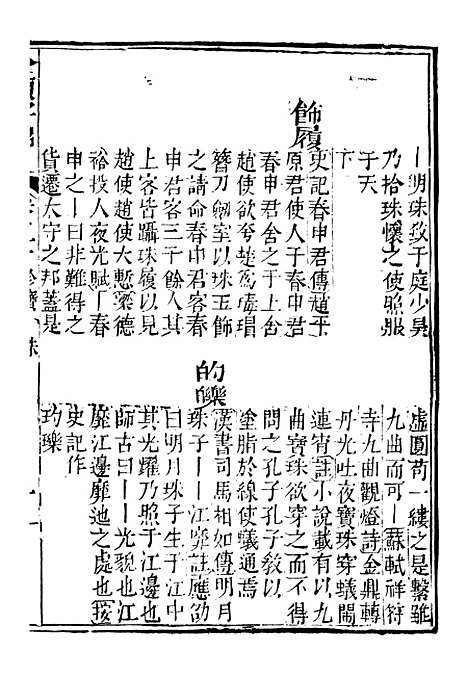 丨明珠致于庭少昊
乃拾珠懷之使照服
于天
下
飾履
史記春申君傳趙平
原君使人于春申君
春申君舍之于上舍
趙使欲夸楚爲瑇瑁
簪刀劒室以珠玉飾
之請命春申君客春
申君客三千餘人其
上客皆躡珠履以見
趙使趙使大慙梁德
裕投人夜光賦丨春
申之丨曰非難得之
貨遷太守之邦蓋是
虛圓苟一縷之是繫雖
九曲而可丨蘇軾祥符
寺九曲觀燈詩金鼎轉
丹光吐夜寶珠穿蟻鬧
連宵註小說載有以九
曲寶珠欲穿之而不得
問之孔子孔子敎以
塗脂於線使蟻通焉
的皪
漢書司馬相如傳明月
珠子丨丨江靡註應劭
曰明月珠子生于江中
其光耀乃照于江邊也
師古曰丨丨光貌也江
靡江邊靡迆之處也按
史記作
玓瓅